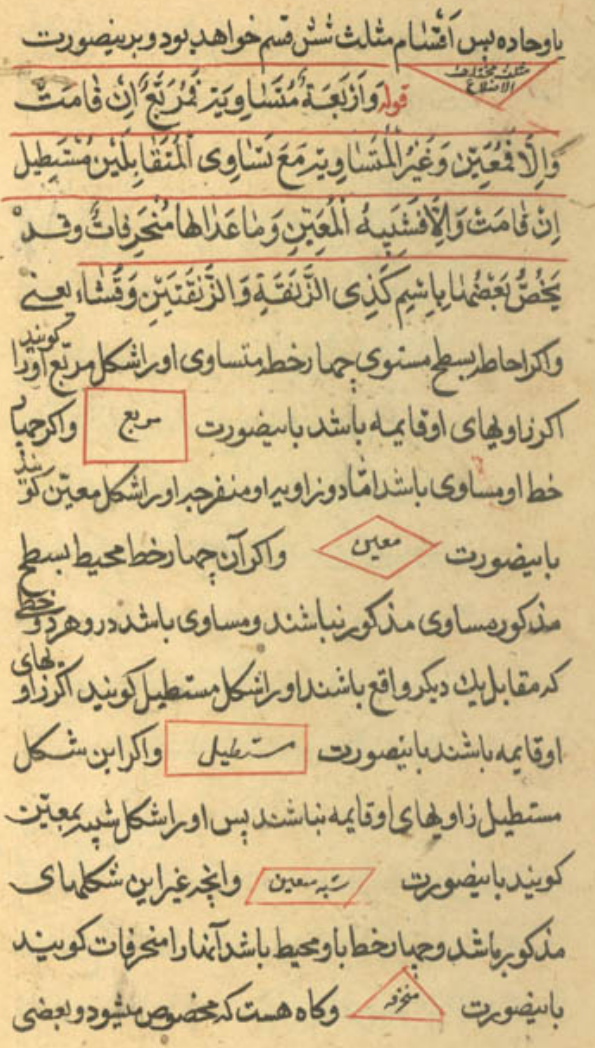 یا حاده پس اقسام مثلث شش قسم خواهد بود و بر ینصورت
مثلث مختلف الاضلاع
قوله وَاَرْبَعَةٌ مُتَسَاوِیَةٌ فَمُرَبَّعٌ اِنْ قَامَتْ
وَاِلَّا فَمُعَیَّنٌ وَغَیْرُ الْمُتَسَاوِیَةِ مَعَ تَسَاوِی الْمُتَقَابِلَیْنِ مُسْتَطِیلٌ
اِنْ قَامَتْ وَاِلَّا فَشَبِیهُ الْمُعَیَّنِ وَمَا عَدَاهَا مُنْحَرِفَاتٌ وَقَدْ
یَخُصُّ بَعْضُهَا بِاسْمٍ کَذِی الزَّنَقَةِ وَالزَّنَقَتَیْنِ وَقَثَّاء یعنے
واکر احاطه بسطح مستوی چهار خط متساوی اورا شکل مربع کویند اورا
اکر زاویهای او قایمه باشد باینصورت مربع واکر چهار
خط او مساوی باشد امّا دو زاویه او منفرجه اورا شکل معین کویند
باینصورت معین واکر آن چهار خط محیط بسطح
مذکور مساوی مذکور نباشند و مساوی باشد در و هر دو خطی
که مقابل یك دیکر واقع باشند اورا شکل مستطیل کویند اکر زاویهای
او قایمه باشند باینصورت مستطیل واکر این شکل
مستطیل زاویهای او قایمه نباشند پس اورا شکل شبیه بمعین
کویند باینصورت شبه معین وانچه غیر این شکلهای
مذکور باشد و چهار خط باو محیط باشد آنها را منحرفات کویند
باینصورت منحرفه وکاه هست که مخصوص میشود و بعضی